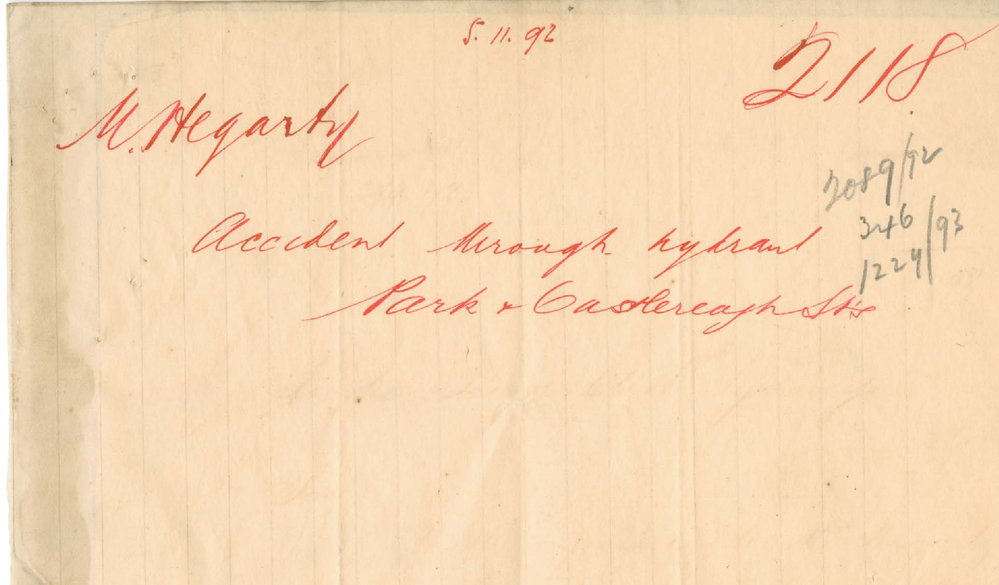 5.11.92
2118
M. Hegarty
2089/92
Accident through hydrant
346
1224/93
Park & Castlereagh Sts